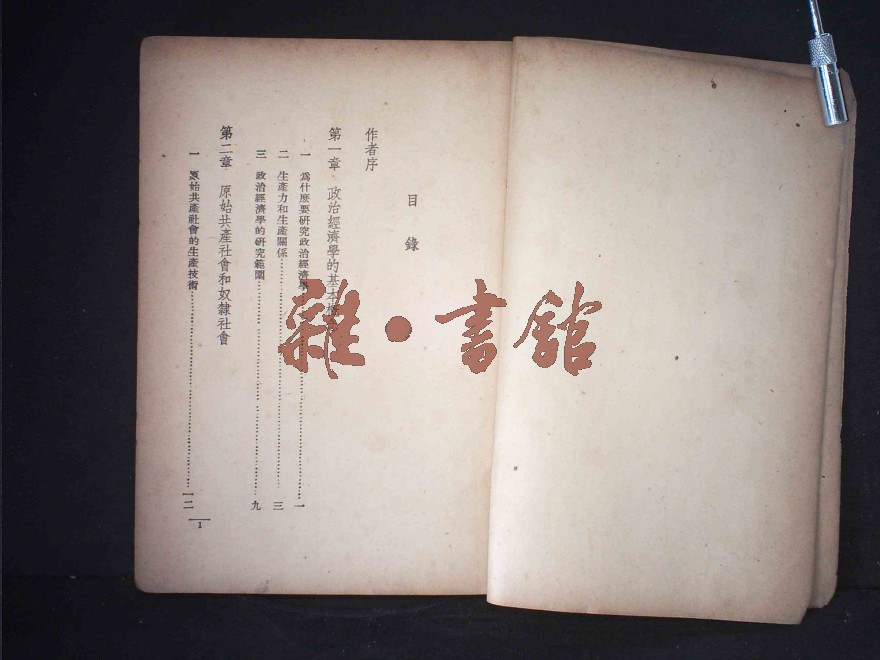 目錄
作者序
第一章 政治經濟學的基本
一 爲什麼要研究政治經濟學……一
二 生產力和生產關係……三
三 政治經濟學的研究範圍……九
第二章 原始共產社會和奴隸社會
一 原始共產社會的生產技術……一二
1
雜·書館